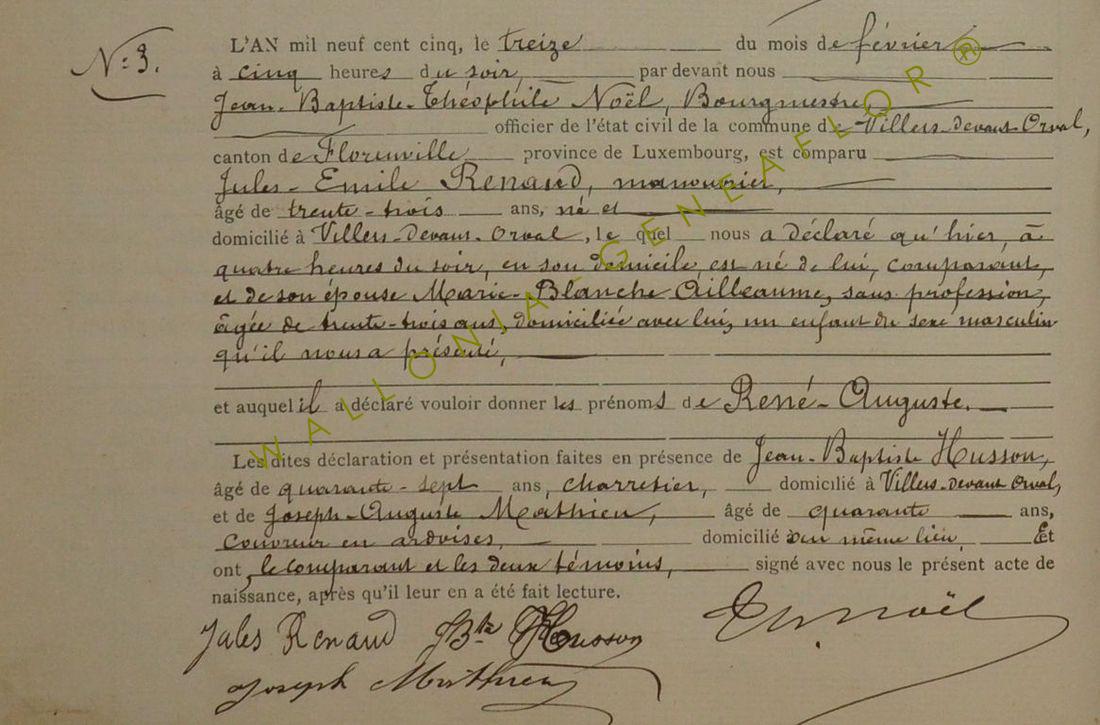 N: 3.
L'AN mil neuf cent cinq, le treize du mois de février
à cinq heures du soir, par devant nous
Jean-Baptiste-Théophile Noël, Bourgmestre,
officier de l'état civil de la commune de Villers-devant-Orval,
canton de Florenville province de Luxembourg, est comparu
Jules-Emile Renaud, manouvrier,
âgé de trente-trois ans, né et
domicilié à Villers-devant-Orval, le quel nous a déclaré qu'hier, à
quatre heures du soir, en son domicile, est né de lui, comparant,
et de son épouse Marie-Blanche Ailleaume, sans profession,
âgée de trente-trois ans, domiciliée avec lui, un enfant du sexe masculin
qu'il nous a présenté,
et auquel il a déclaré vouloir donner les prénoms de René-Auguste.
Les dites déclaration et présentation faites en présence de Jean-Baptiste Husson,
âgé de quarante-sept ans, charretier, domicilié à Villers-devant Orval,
et de Joseph-Auguste Mathieu, âgé de quarante ans,
couvreur en ardoises, domicilié au même lieu, Et
ont, le comparant et les deux témoins, signé avec nous le présent acte de
naissance, après qu'il leur en a été fait lecture.
Jules Renaud Bte Husson Th. Noël
Joseph Mathieu
WALLONIA-GENEAFLOR ®